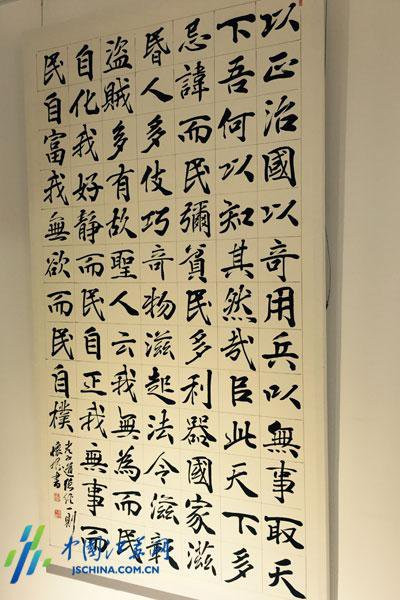 以正治國以奇用兵以無事取天
下吾何以知其然哉㠯此天下多
忌諱而民彌貧民多利器國家滋
昏人多伎巧奇物滋起法令滋彰
盜賊多有故聖人云我無為而民
自化我好靜而民自正我無事而
民自富我無欲而民自樸
老子道德經一則
書
中国江苏网
JSCHINA.COM.CN